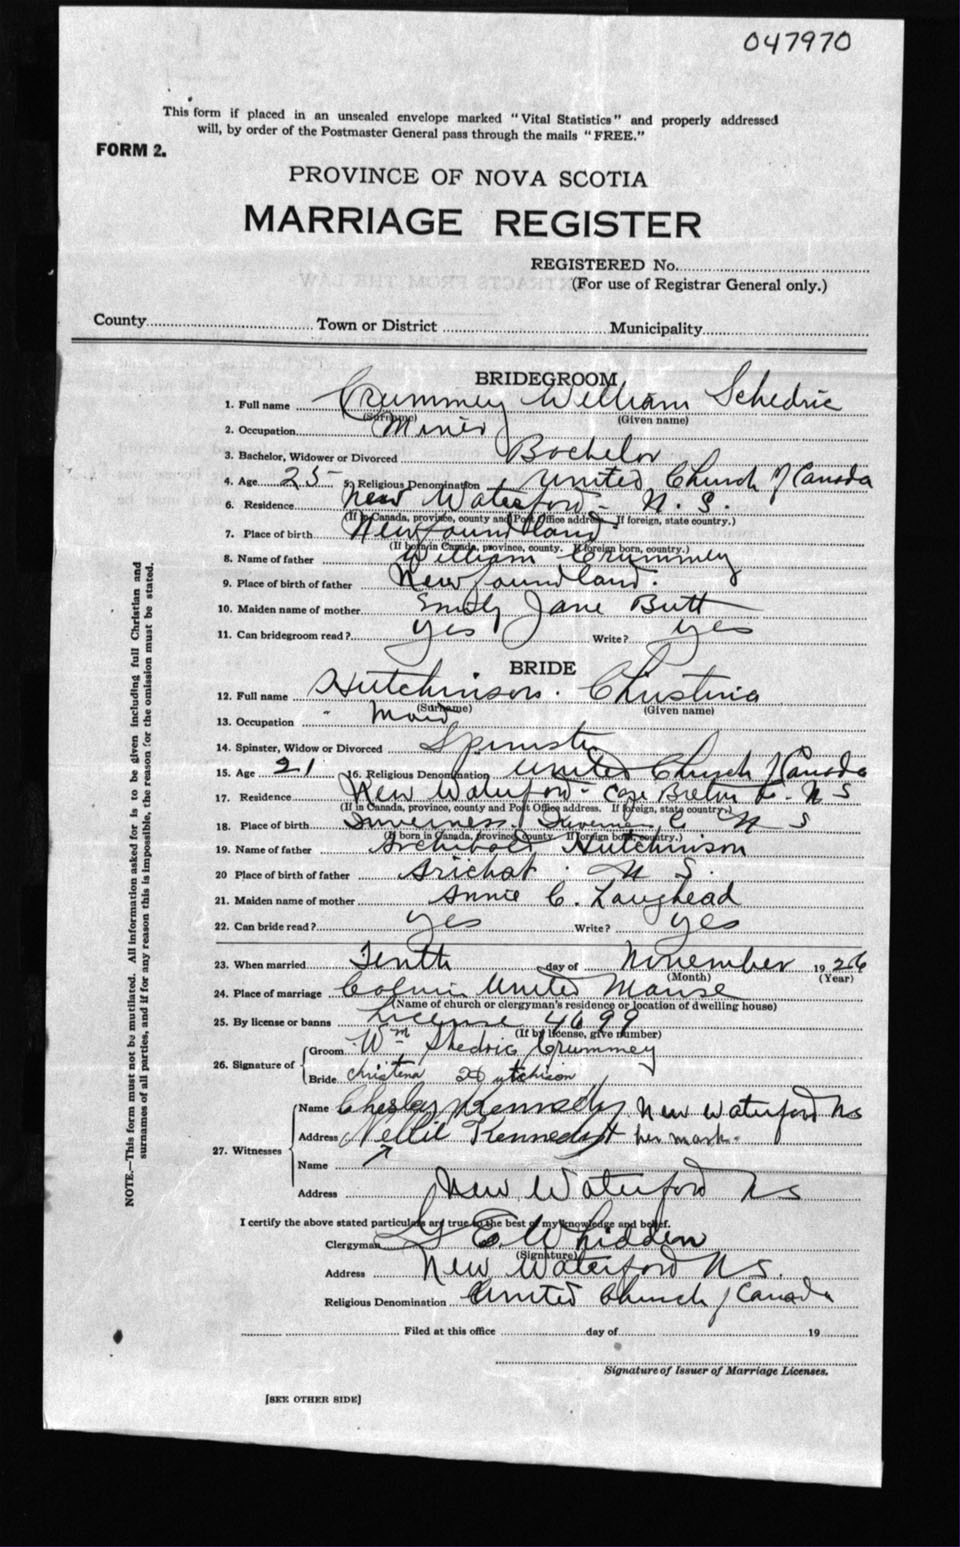 047970
This form if placed in an unsealed envelope marked "Vital Statistics" and properly addressed
will, by order of the Postmaster General pass through the mails "FREE."
FORM 2.
PROVINCE OF NOVA SCOTIA
MARRIAGE REGISTER
REGISTERED No.
(For use of Registrar General only.)
County Town or District Municipality
BRIDEGROOM
1. Full name Crummey William Schedric
(Surname) (Given name)
2. Occupation Miner
3. Bachelor, Widower or Divorced Bachelor
4. Age 25 5. Religious Denomination United Church of Canada
6. Residence New Waterford - N. S.
(If in Canada, province, county and Post Office address. If foreign, state country.)
7. Place of birth Newfoundland
(If born in Canada, province, county. If foreign born, country.)
8. Name of father William Crummey
9. Place of birth of father Newfoundland.
10. Maiden name of mother Emily Jane Butt
11. Can bridegroom read? yes Write? yes
BRIDE
12. Full name Hutchinson. Christina
(Surname) (Given name)
13. Occupation - Maid
14. Spinster, Widow or Divorced Spinster
15. Age 21 16. Religious Denomination United Church of Canada
17. Residence New Waterford - Cape Breton Co. N S
(If in Canada, province, county and Post Office address. If foreign, state country.)
18. Place of birth Inverness. Inverness C N S
(If born in Canada, province, county. If foreign born, country.)
19. Name of father Archibald Hutchinson
20 Place of birth of father Arichat. N S.
21. Maiden name of mother Annie C. Laughead
22. Can bride read? yes Write? yes
23. When married Tenth day of November 1926
(Month) (Year)
24. Place of marriage Calvin United Manse
(Name of church or clergyman's residence or location of dwelling house)
25. By license or banns License 4099
(If by license, give number)
26. Signature of Groom Wm Shedric Crummey
Bride Christena Hutchison
27. Witnesses
Name Chesley Kennedy New Waterford NS
Address Nellie Kennedy X her mark.
Name
Address New Waterford NS
I certify the above stated particulars are true to the best of my knowledge and belief.
Clergyman E. Whidden
(Signature)
Address New Waterford N.S.
Religious Denomination United Church of Canada
Filed at this office day of 19
Signature of Issuer of Marriage Licenses.
[SEE OTHER SIDE]
NOTE.—This form must not be mutilated. All information asked for is to be given including full Christian and
surnames of all parties, and if for any reason this is impossible, the reason for the omission must be stated.